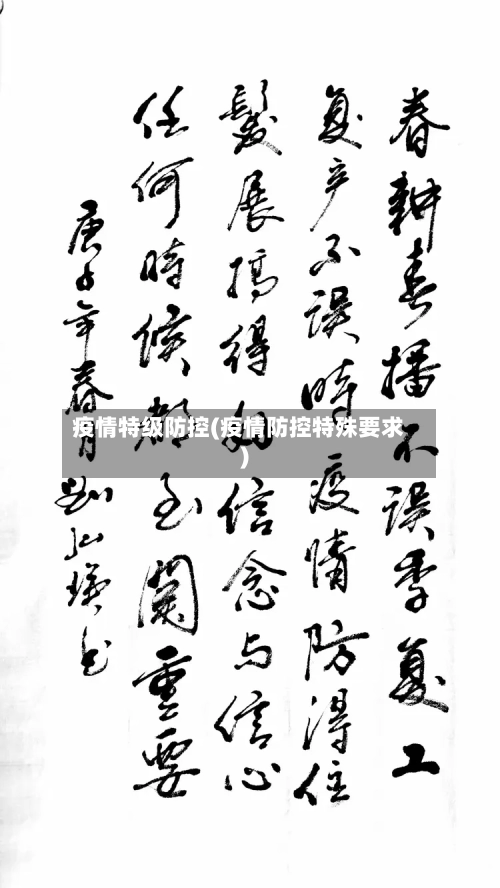 春耕春播不误季复工
复产不误時疫情防得住
发展搞得好信念与信心
任何時候都至關重要
庚子年春月
疫情特级防控(疫情防控特殊要求
)